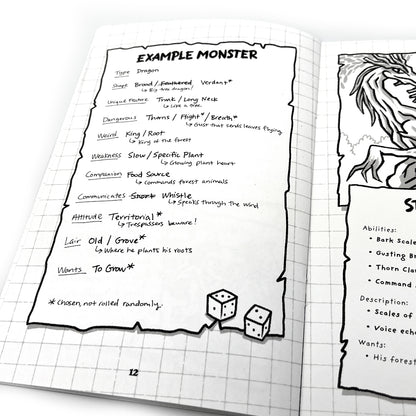 EXAMPLE MONSTER
Type Dragon
Shape Broad / Feathered Verdant*
↳ Big tree dragon!
Unique Feature Trunk / Long Neck
↳ Like a tree
Dangerous Thorns / Flight* / Breath*
↳ Gust that sends leaves flying
Weird King / Root
↳ King of the forest
Weakness Slow / Specific Plant
↳ Glowing plant heart
Companion Food Source
↳ Commands forest animals
Communicates Snort Whistle
↳ Speaks through the wind
Attitude Territorial*
↳ Trespassers beware!
Lair Old / Grove*
↳ Where he plants his roots
Wants To Grow*
* Chosen, not rolled randomly.
12
Abilities:
• Bark Scale
• Gusting Br
• Thorn Cla
• Command
Description:
• Scales of
• Voice ech
Wants:
• His forest